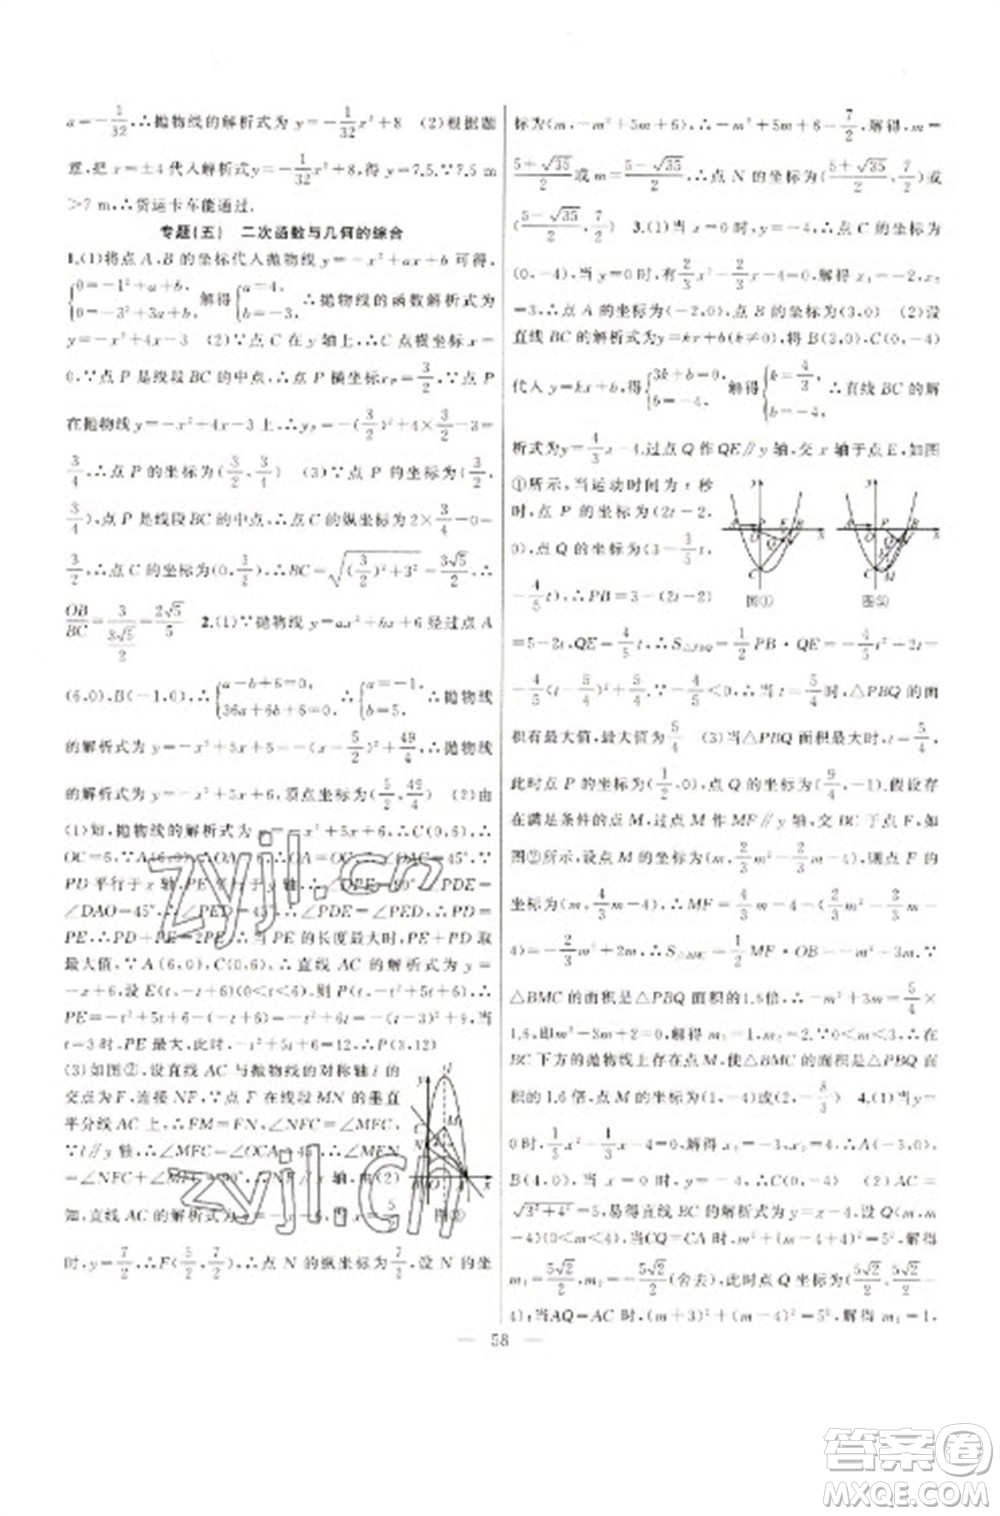 a=-1/32,∴抛物线的解析式为 y=-1/32x²+8 (2)根据题
意,把 x=±4 代入解析式 y=-1/32x²+8,得 y=7.5,∵7.5 m
>7 m,∴货运卡车能通过.
专题(五) 二次函数与几何的综合
1.(1)将点 A、B 的坐标代入抛物线 y=-x²+ax+b 可得,
{0=-1²+a+b, 0=-3²+3a+b, 解得{a=4, b=-3, ∴抛物线的函数解析式为
y=-x²+4x-3 (2)∵点 C 在 y 轴上,∴点 C 横坐标 x=
0,∵点 P 是线段 BC 的中点,∴点 P 横坐标 xP=3/2,∵点 P
在抛物线 y=-x²+4x-3 上,∴yP=-(3/2)²+4×3/2-3=
3/4,∴点 P 的坐标为(3/2,3/4) (3)∵点 P 的坐标为(3/2,
3/4),点 P 是线段 BC 的中点,∴点 C 的纵坐标为 2×3/4-0=
3/2,∴点 C 的坐标为(0,3/2),∴BC=√((3/2)²+3²)=3√5/2,∴
OB/BC=3/(3√5/2)=2√5/5 2.(1)∵抛物线 y=ax²+bx+6 经过点 A
(6,0),B(-1,0),∴{a-b+6=0, 36a+6b+6=0, ∴{a=-1, b=5, ∴抛物线
的解析式为 y=-x²+5x+6=-(x-5/2)²+49/4,∴抛物线
的解析式为 y=-x²+5x+6,顶点坐标为(5/2,49/4) (2)由
(1)知,抛物线的解析式为 y=-x²+5x+6,∴
OC=6,∵A(6,0),∴OA=6,∴ =45°,∵
PD 平行于 x 轴,PE∥y 轴,∴∠DPE=90°,∠PDE=
∠DAO=45°,∴∠PED=45°,∴∠PDE=∠PED,∴PD=
PE,∴PD+PE=2PE,∴当 PE 的长度最大时,PE+PD 取
最大值,∵A(6,0),C(0,6),∴直线 AC 的解析式为 y=
-x+6,设 E(t,-t+6)(0<t<6),则 P(t,-t²+5t+6),∴
PE=-t²+5t+6-(-t+6)=-t²+6t=-(t-3)²+9,当
t=3 时,PE 最大,此时,-t²+5t+6=12,∴P(3,12)
(3)如图②,设直线 AC 与抛物线的对称轴 l 的
交点为 F,连接 NF,∵点 F 在线段 MN 的垂直
平分线 AC 上,∴FM=FN,∠NFC=∠MFC,
∵l∥y 轴,∴∠MFC=∠OCA=45°,∴∠MFN
=∠NFC+∠MFC=90°,∴NF∥x 轴,由(2)
知,直线 AC 的解析式为 y=-x+6,当 x=5/2 图②
时,y=7/2,∴F(5/2,7/2),∴点 N 的纵坐标为7/2,设 N 的坐
标为(m,-m²+5m+6),∴-m²+5m+6=7/2,解得,m=
(5+√35)/2或 m=(5-√35)/2,∴点 N 的坐标为((5+√35)/2,7/2)或
((5-√35)/2,7/2) 3.(1)当 x=0 时,y=-4,∴点 C 的坐标为
(0,-4),当 y=0 时,有2/3x²-2/3x-4=0,解得 x₁=-2,x₂
=3,∴点 A 的坐标为(-2,0),点 B 的坐标为(3,0) (2)设
直线 BC 的解析式为 y=kx+b(k≠0),将 B(3,0),C(0,-4)
代入 y=kx+b,得{3k+b=0, b=-4, 解得{k=4/3, b=-4, ∴直线 BC 的解
析式为 y=4/3x-4.过点 Q 作 QE∥y 轴,交 x 轴于点 E,如图
①所示,当运动时间为 t 秒
时,点 P 的坐标为(2t-2,
0),点 Q 的坐标为(3-3/5t,-
4/5t),∴PB=3-(2t-2)
图① 图②
=5-2t,QE=4/5t,∴S△PBQ=1/2PB·QE=-4/5t²+2t=
-4/5(t-5/4)²+5/4,∵-4/5<0,∴当 t=5/4时,△PBQ 的面
积有最大值,最大值为5/4 (3)当△PBQ 面积最大时,t=5/4,
此时点 P 的坐标为(1/2,0),点 Q 的坐标为(9/4,-1).假设存
在满足条件的点 M,过点 M 作 MF∥y 轴,交 BC 于点 F,如
图②所示,设点 M 的坐标为(m,2/3m²-2/3m-4),则点 F 的
坐标为(m,4/3m-4),∴MF=4/3m-4-(2/3m²-2/3m-
4)=-2/3m²+2m,∴S△BMC=1/2MF·OB=-m²+3m.∵
△BMC 的面积是△PBQ 面积的1.6倍,∴-m²+3m=5/4×
1.6,即m²-3m+2=0,解得 m₁=1,m₂=2.∵0<m<3,∴在
BC 下方的抛物线上存在点 M,使△BMC 面积是△PBQ 面
积的 1.6 倍,点 M 的坐标为(1,-4)或(2,-8/3) 4.(1)当 y=
0时,1/3x²-1/3x-4=0,解得 x₁=-3,x₂=4,∴A(-3,0),
B(4,0),当 x=0,y=1/3x²-1/3x-4=-4,∴C(0,-4) (2)AC=
√(3²+4²)=5,易得直线 BC 的解析式为 y=x-4,设 Q(m,m
-4)(0<m<4),当CQ=CA 时,m²+(m-4+4)²=5²,解得
m₁=5√2/2,m₂=-5√2/2(舍去),此时点 Q 坐标为(5√2/2,5√2/2-
4);当AQ=AC 时,(m+3)²+(m-4)²=5²,解得 m₁=1,
58
zyjl.cn
zyjl.cn
答案圈
MXQE.COM